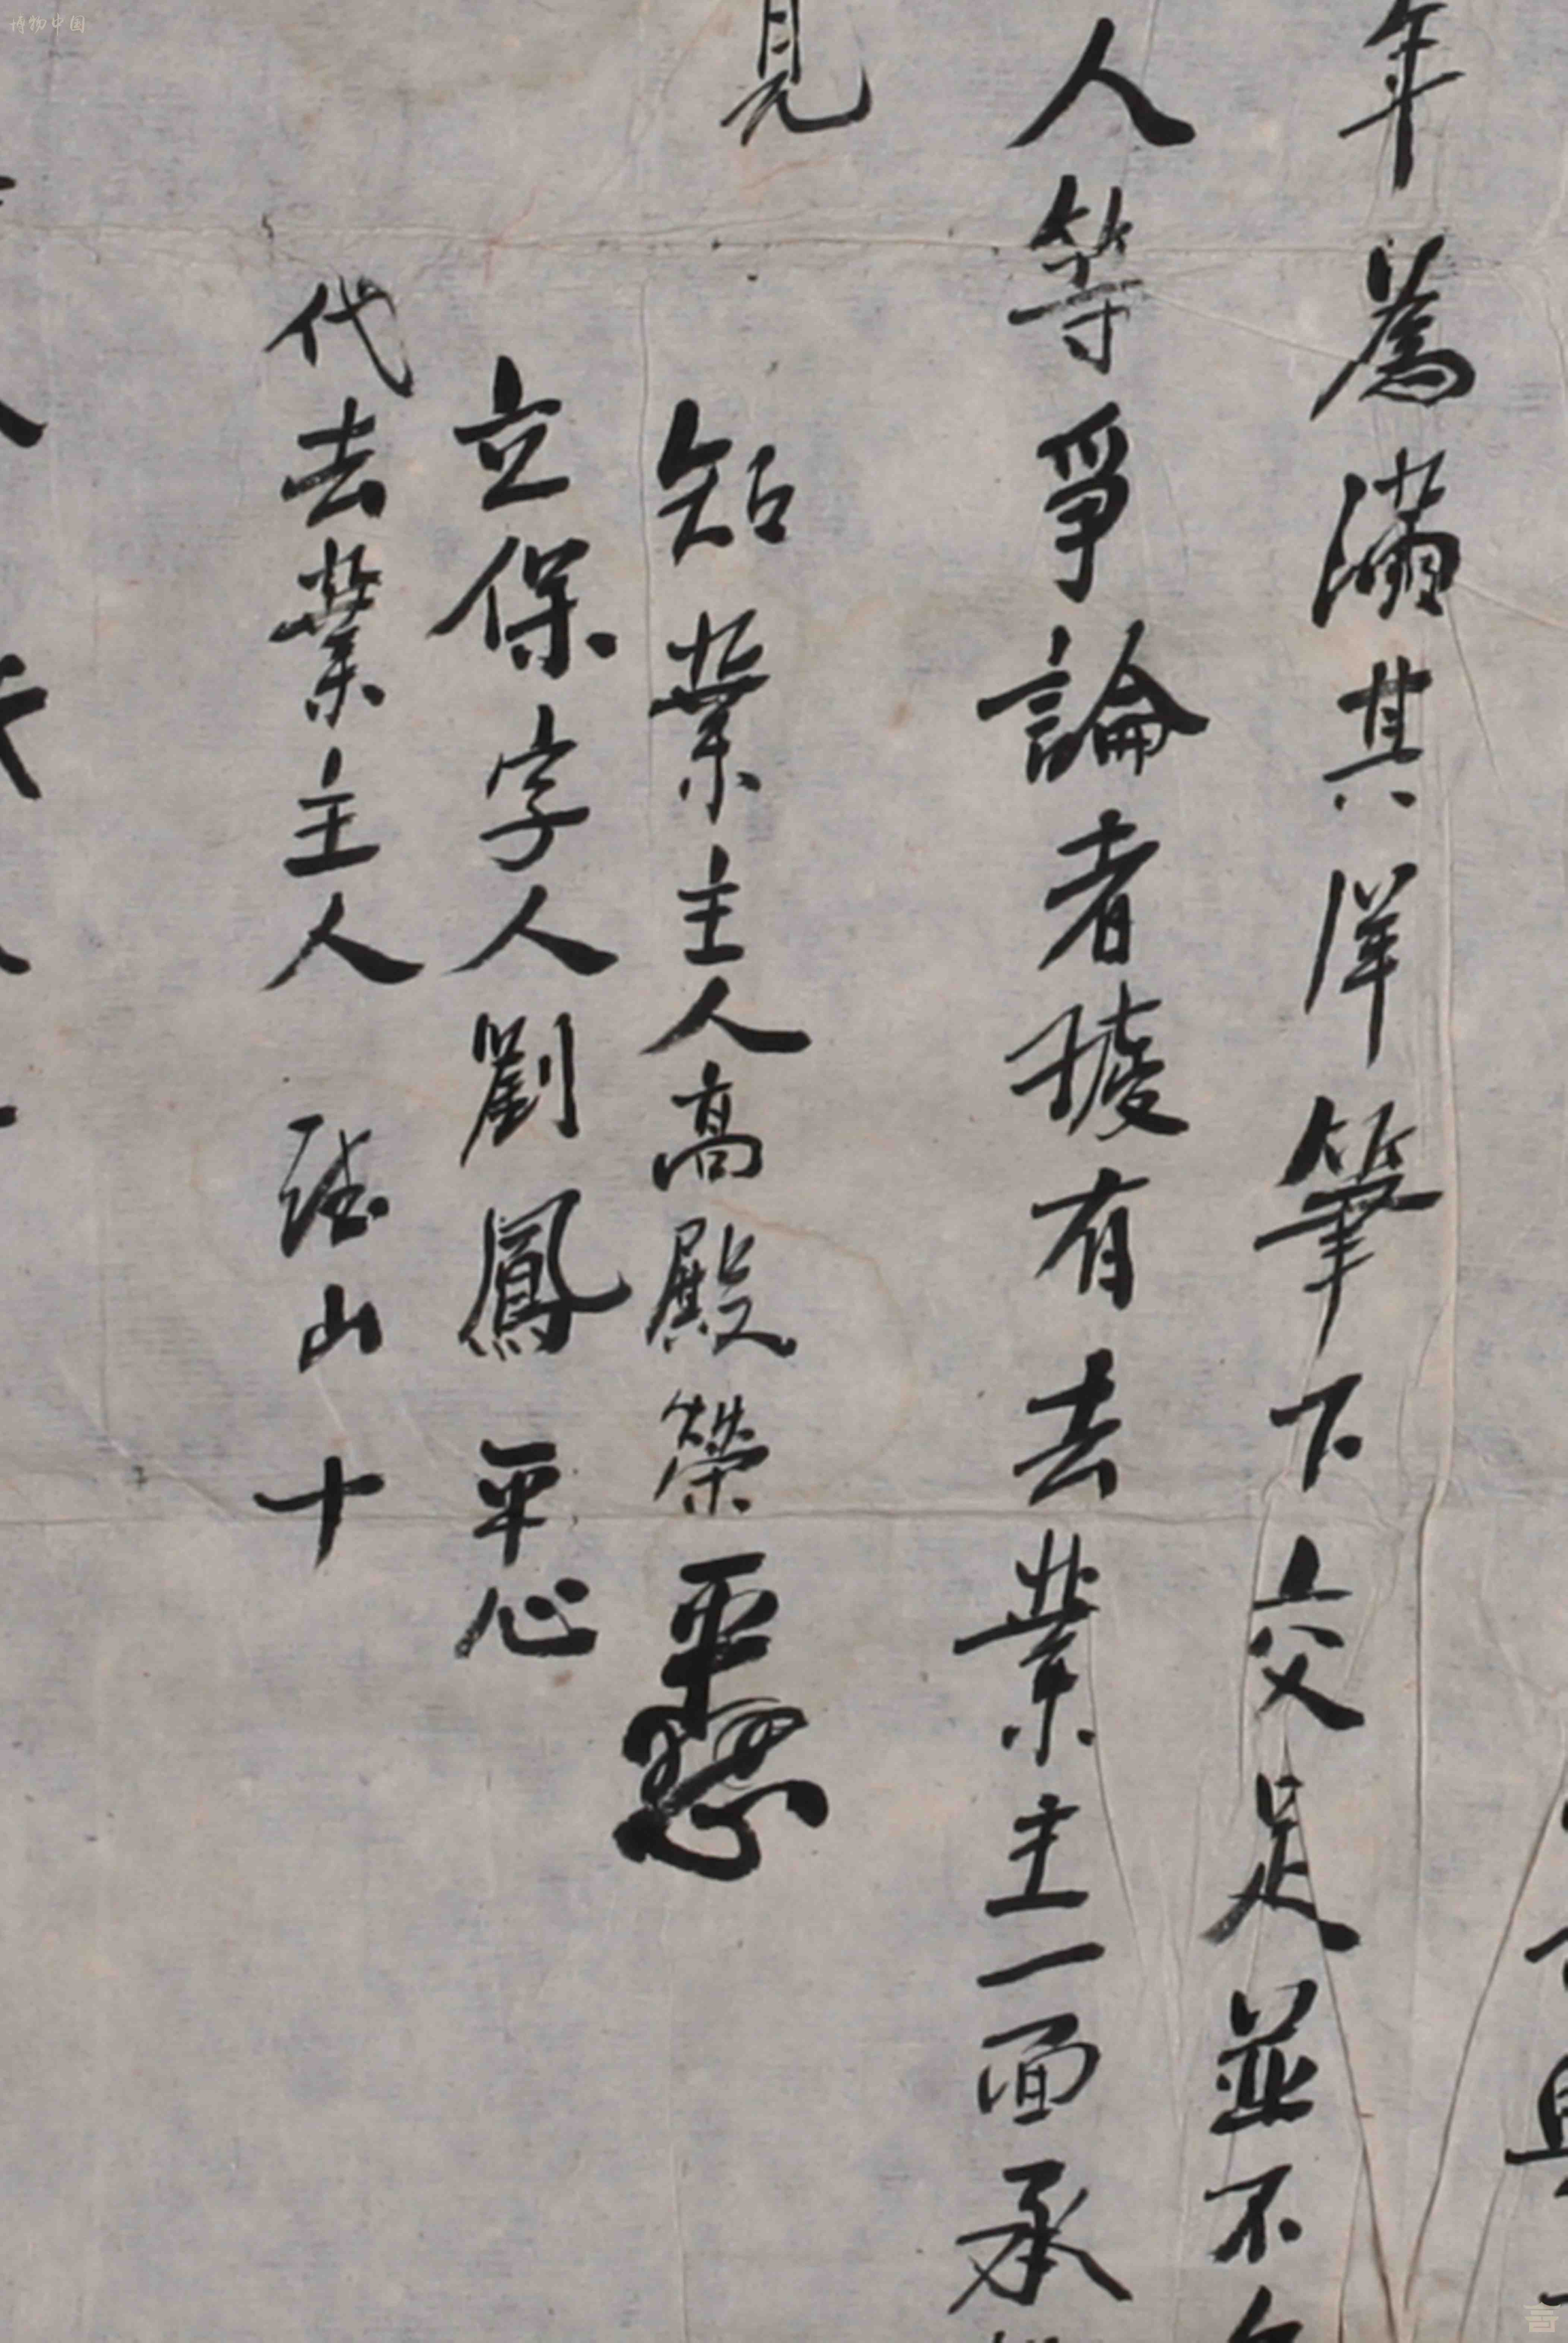 年為滿其洋筆下交足並不
人等爭論者璩有去業主一面承
見
知業主人高殿榮 平
立保字人劉鳳 平心
代去業主人 山 十
博物中国